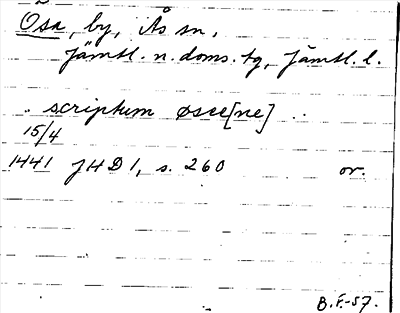 Osa, by, Ås sn,
Jämtl. n. doms. tg, Jämtl. l.
. scriptum øsee[ne] ..
15/4
1441 JHD 1, s. 260 or.
B.F.-57.